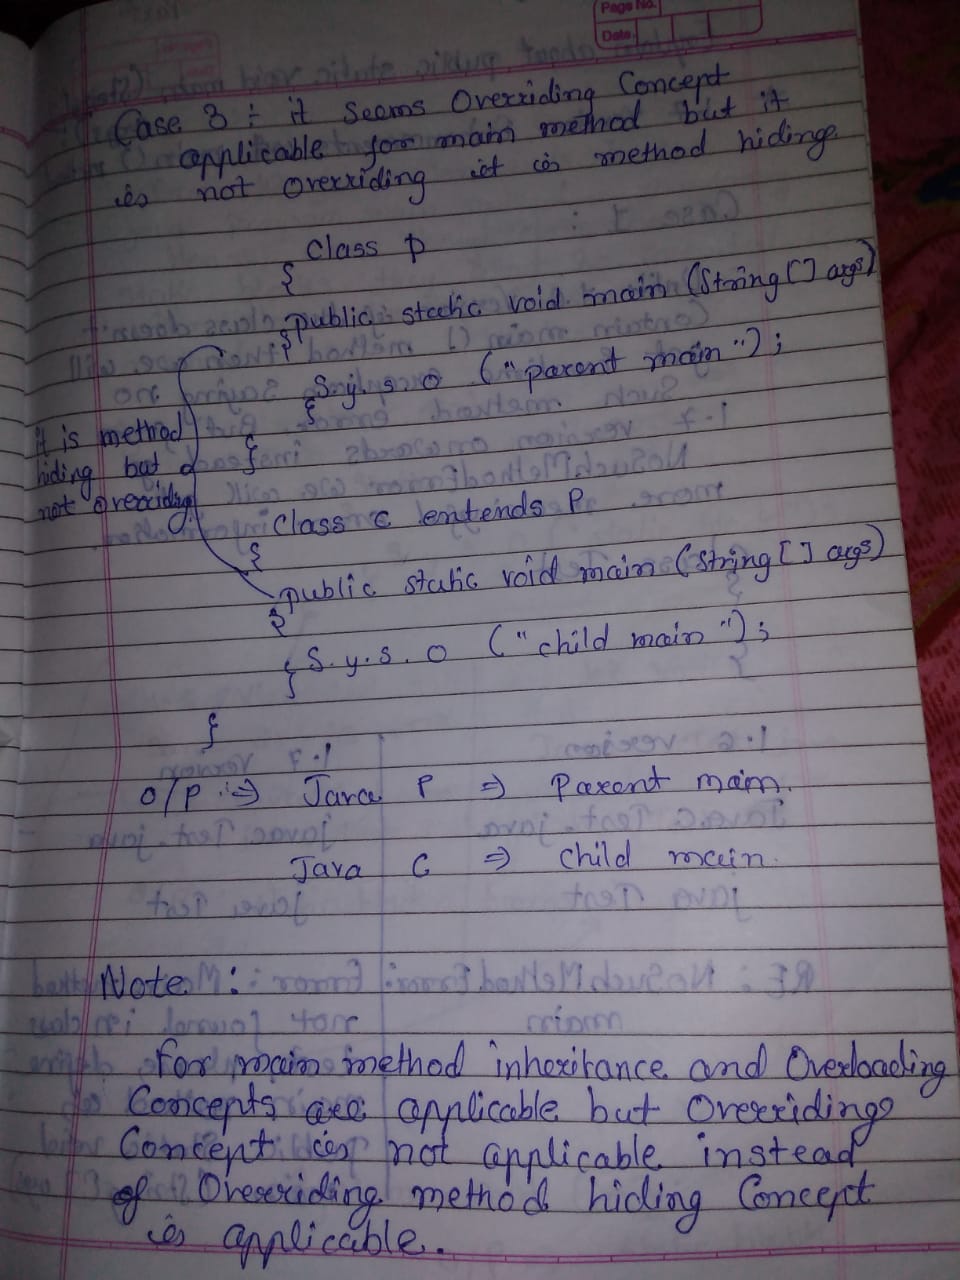 Page No.
Date
Case 3 :- it seems Overriding Concept
applicable for main method but it
is not overriding it is method hiding.
Class P
{
public static void main (String [] args)
{
S.y.s.o ("parent main");
}
}
it is method
hiding but
not overriding
Class C entends P
{
public static void main (String [] args)
{
S.y.s.o ("child main");
}
}
O/P :⇒ Java P ⇒ Parent main.
Java C ⇒ child main.
Note :
For main method inheritance and Overloading
Concepts are applicable but Overriding
Concept is not applicable instead
of Overriding method hiding Concept
is applicable.